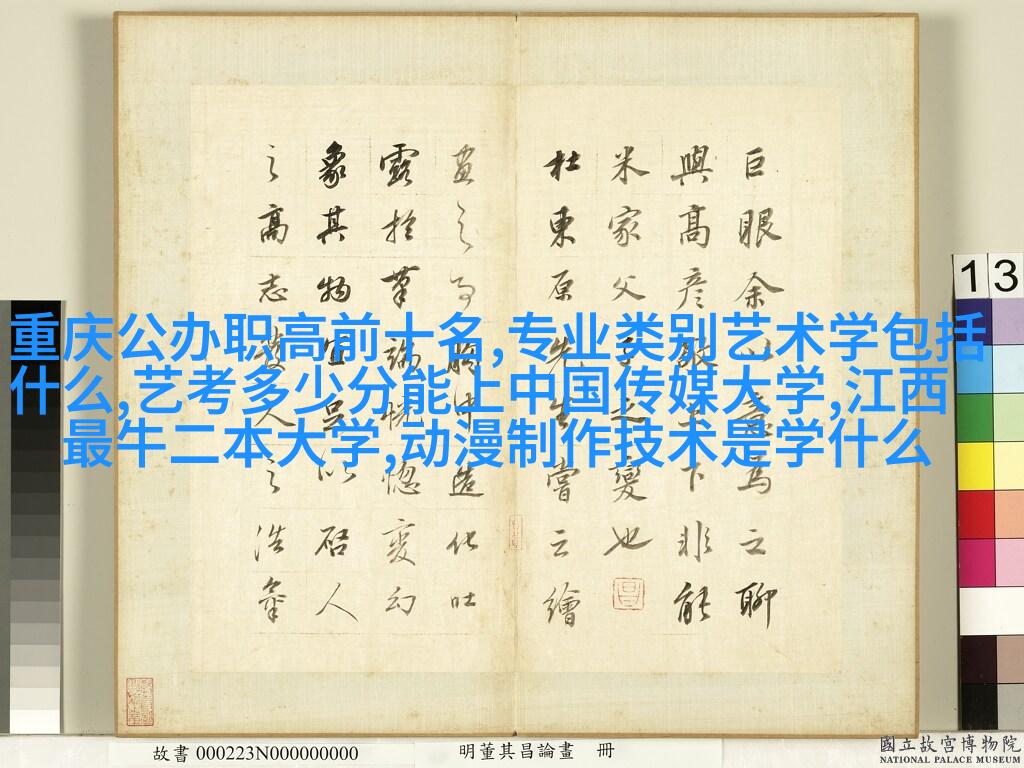 重庆公办职高前十名,专业类别艺术学包括
什么,艺考多少分能上中国传媒大学,江西
最牛二本大学,动漫制作技术是学什么
巨眼余以意為之聊
與高彥敬上下非能
米家父子之變也
杜東原先生嘗云繪
畫之事胸中造化吐
露於筆端恍惚變幻
象其物宜足以啟人
之高志發人之浩氣
13
故書 000223N000000000
明董其昌論畫 冊
國立故宮博物院
NATIONAL PALACE MUSEUM